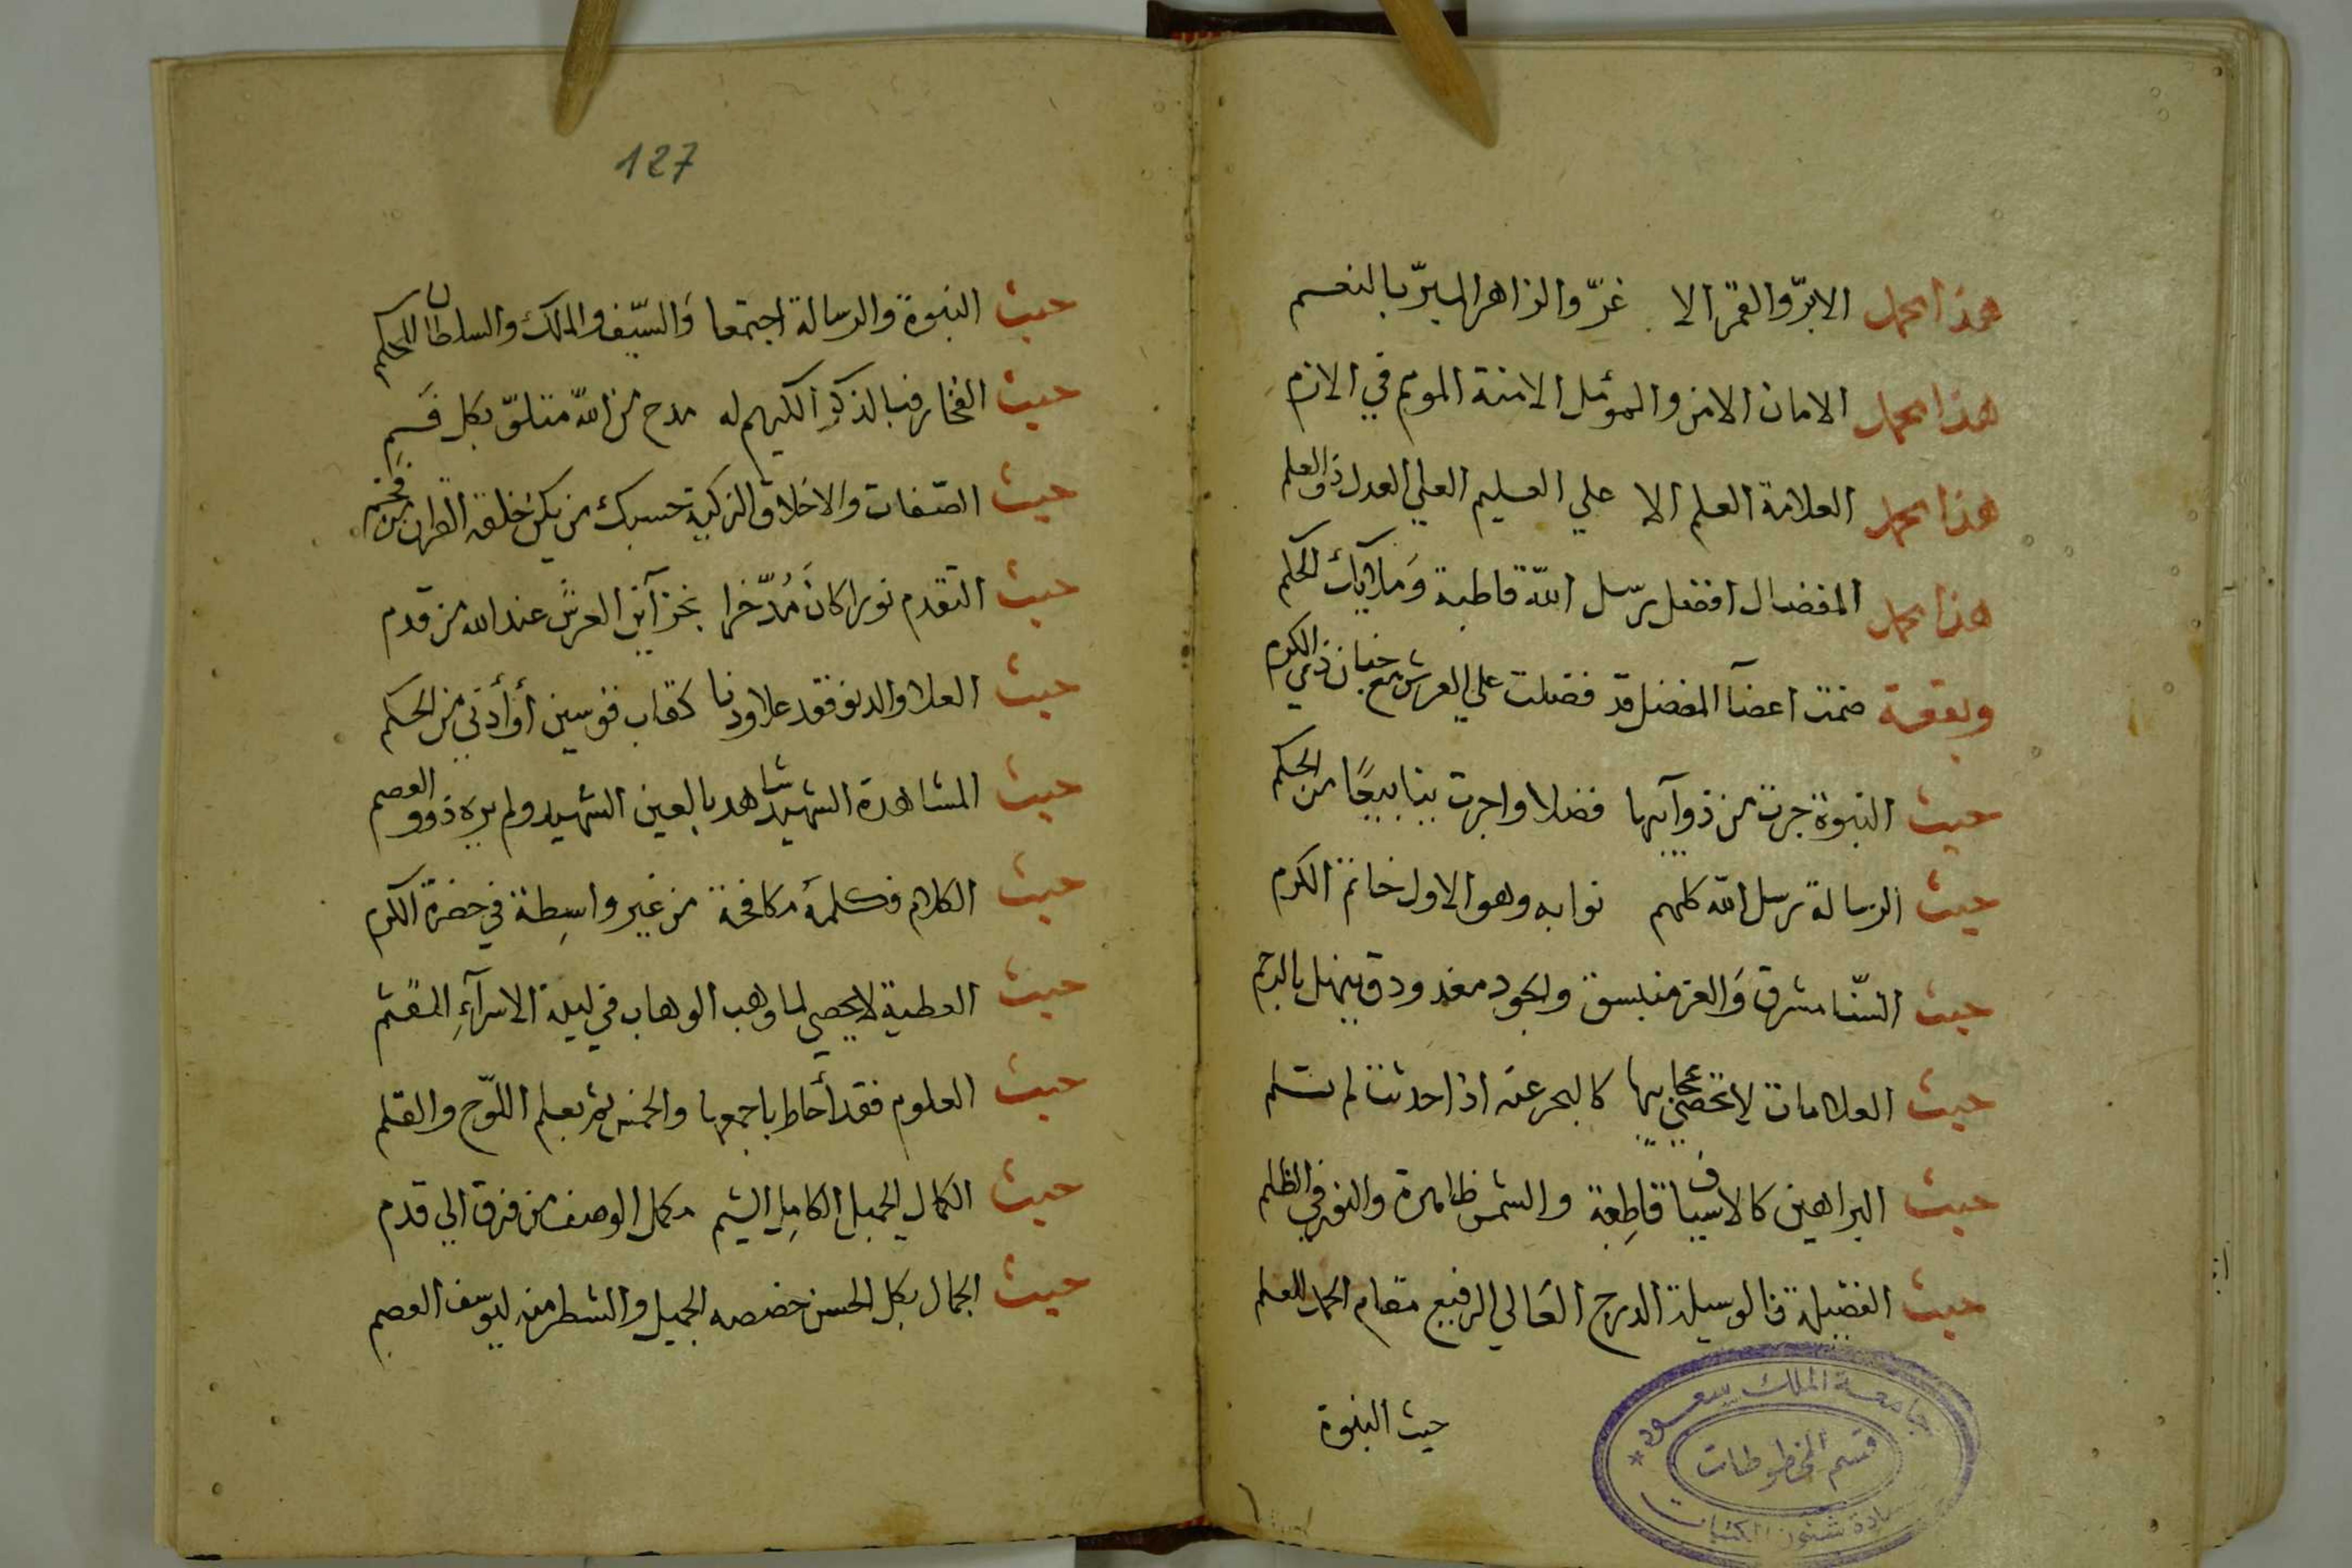 هذا محمد الابرّ والقمر الا غرّ والزاهر البرّ بالنعم
هذا محمد الامان الامن والمؤمل الامنة الموم في الازم
هذا محمد العلامة العلم الا علي العليم العلي العدل ذو العلم
هذا محمد المفضال افضل رسل الله قاطبة وملايك الحكم
وبقعة ضمت اعضآ المفضل قد فضلت علي العرش مع جنان ذي الكرم
حيث النبوة جرت من ذوآيبها فضلا واجرت ينابيعًا من الحكم
حيث الرسالة رسل الله كلهم نوابه وهو الاول خاتم الكرم
حيث السّنا مشرق وَالعز منبسق والجود مغدودق ينهل بالديم
حيث العلامات لا تحصي عجايبها كالبحر عنه اذا حدثت لم تلم
حيث البراهين كالاسياف قاطِعة والشمس ظاهرة والنور في الظلم
حيث الفضيلة فالوسيلة الدرج العَالي الرفيع مقام الحمد للعلم
حيث النبوة
جامعة الملك سعود
قسم المخطوطات
عمادة شئون المكتبات
127
حيث النبوة والرسالة اجتمعا وَالسّيف والملك والسلطان للحكم
حيث الفخار فبالذكرِ الكريم له مدح من الله متلوّ بكل فَمِ
حيث الصّفات وَالاخلاق الزكية حسبك من يكن خلقه القران
حيث التقدم نورا كانَ مُدّخرا بخزآئن العرش عند الله من قدم
حيث العلا والدنو فقد علا ودنا كقاب قوسين أوأدني من الحكم
حيث المشاهدة الشهيد شاهد بالعين الشهيد ولم يره ذوو العصم
حيث الكلام فكلمهُ مكافحة من غير واسِطة في حضرة الكرم
حيث العطية لا يحصي لما وهب الوهاب في ليلة الاسرآءِ
حيث العلوم فقد أحاط باجمعها والخمس ثم بعلم اللّوح والقلم
حيث الكمال الجميل الكامِل الشيم مكمل الوصف من فرق الي قدم
حيث الجمال بكل الحسن خصصه الجميل والشطر منه ليوسف العصم